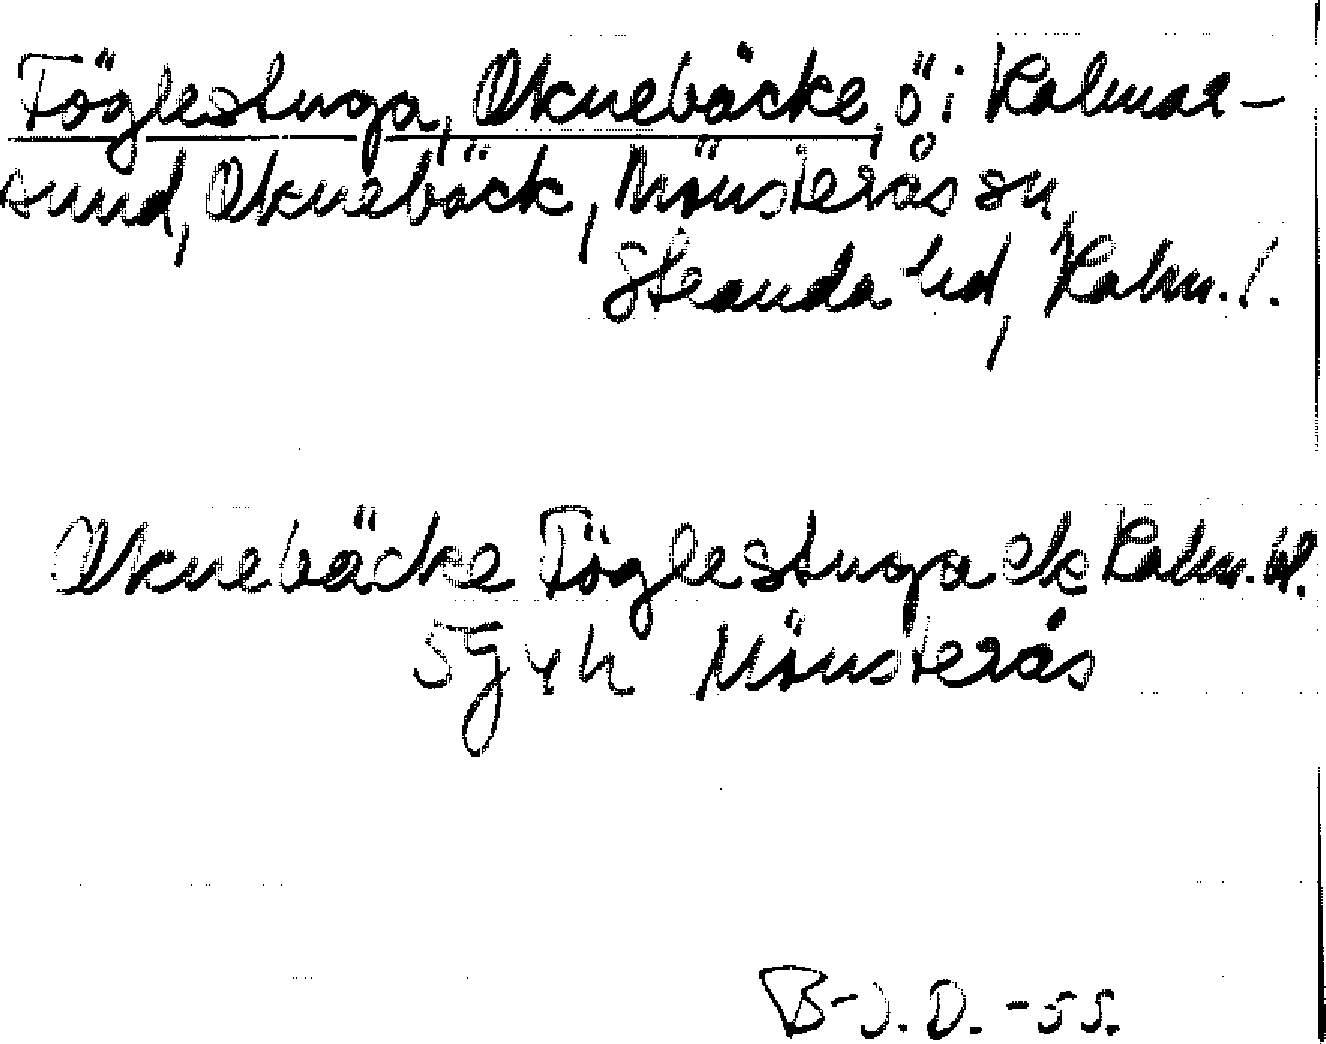 Föglestuga, Oknebäcke, ö i Kalmar-
sund, Oknebäck, Mönsterås sn
Stranda hd, Kalm. l.
Oknebäcke Föglestuga ek Kalm. bl.
5g 4h Mönsterås
B-J. D. -55.